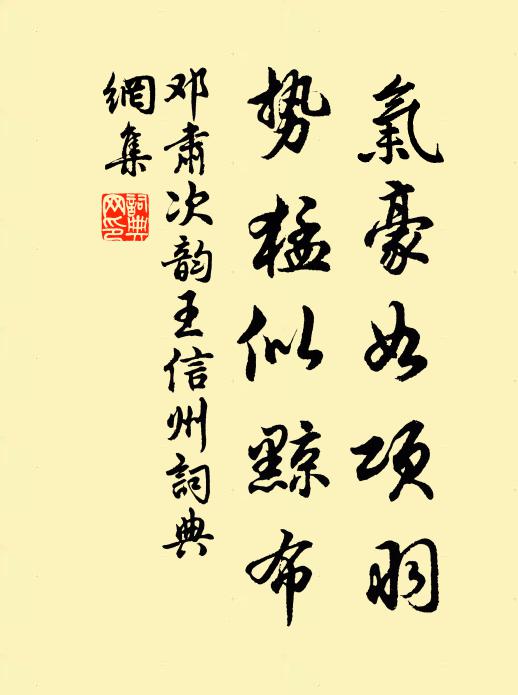 氣豪如項羽
势猛似黥布
邓肅次韵王信州詞典
網集
詞典网印